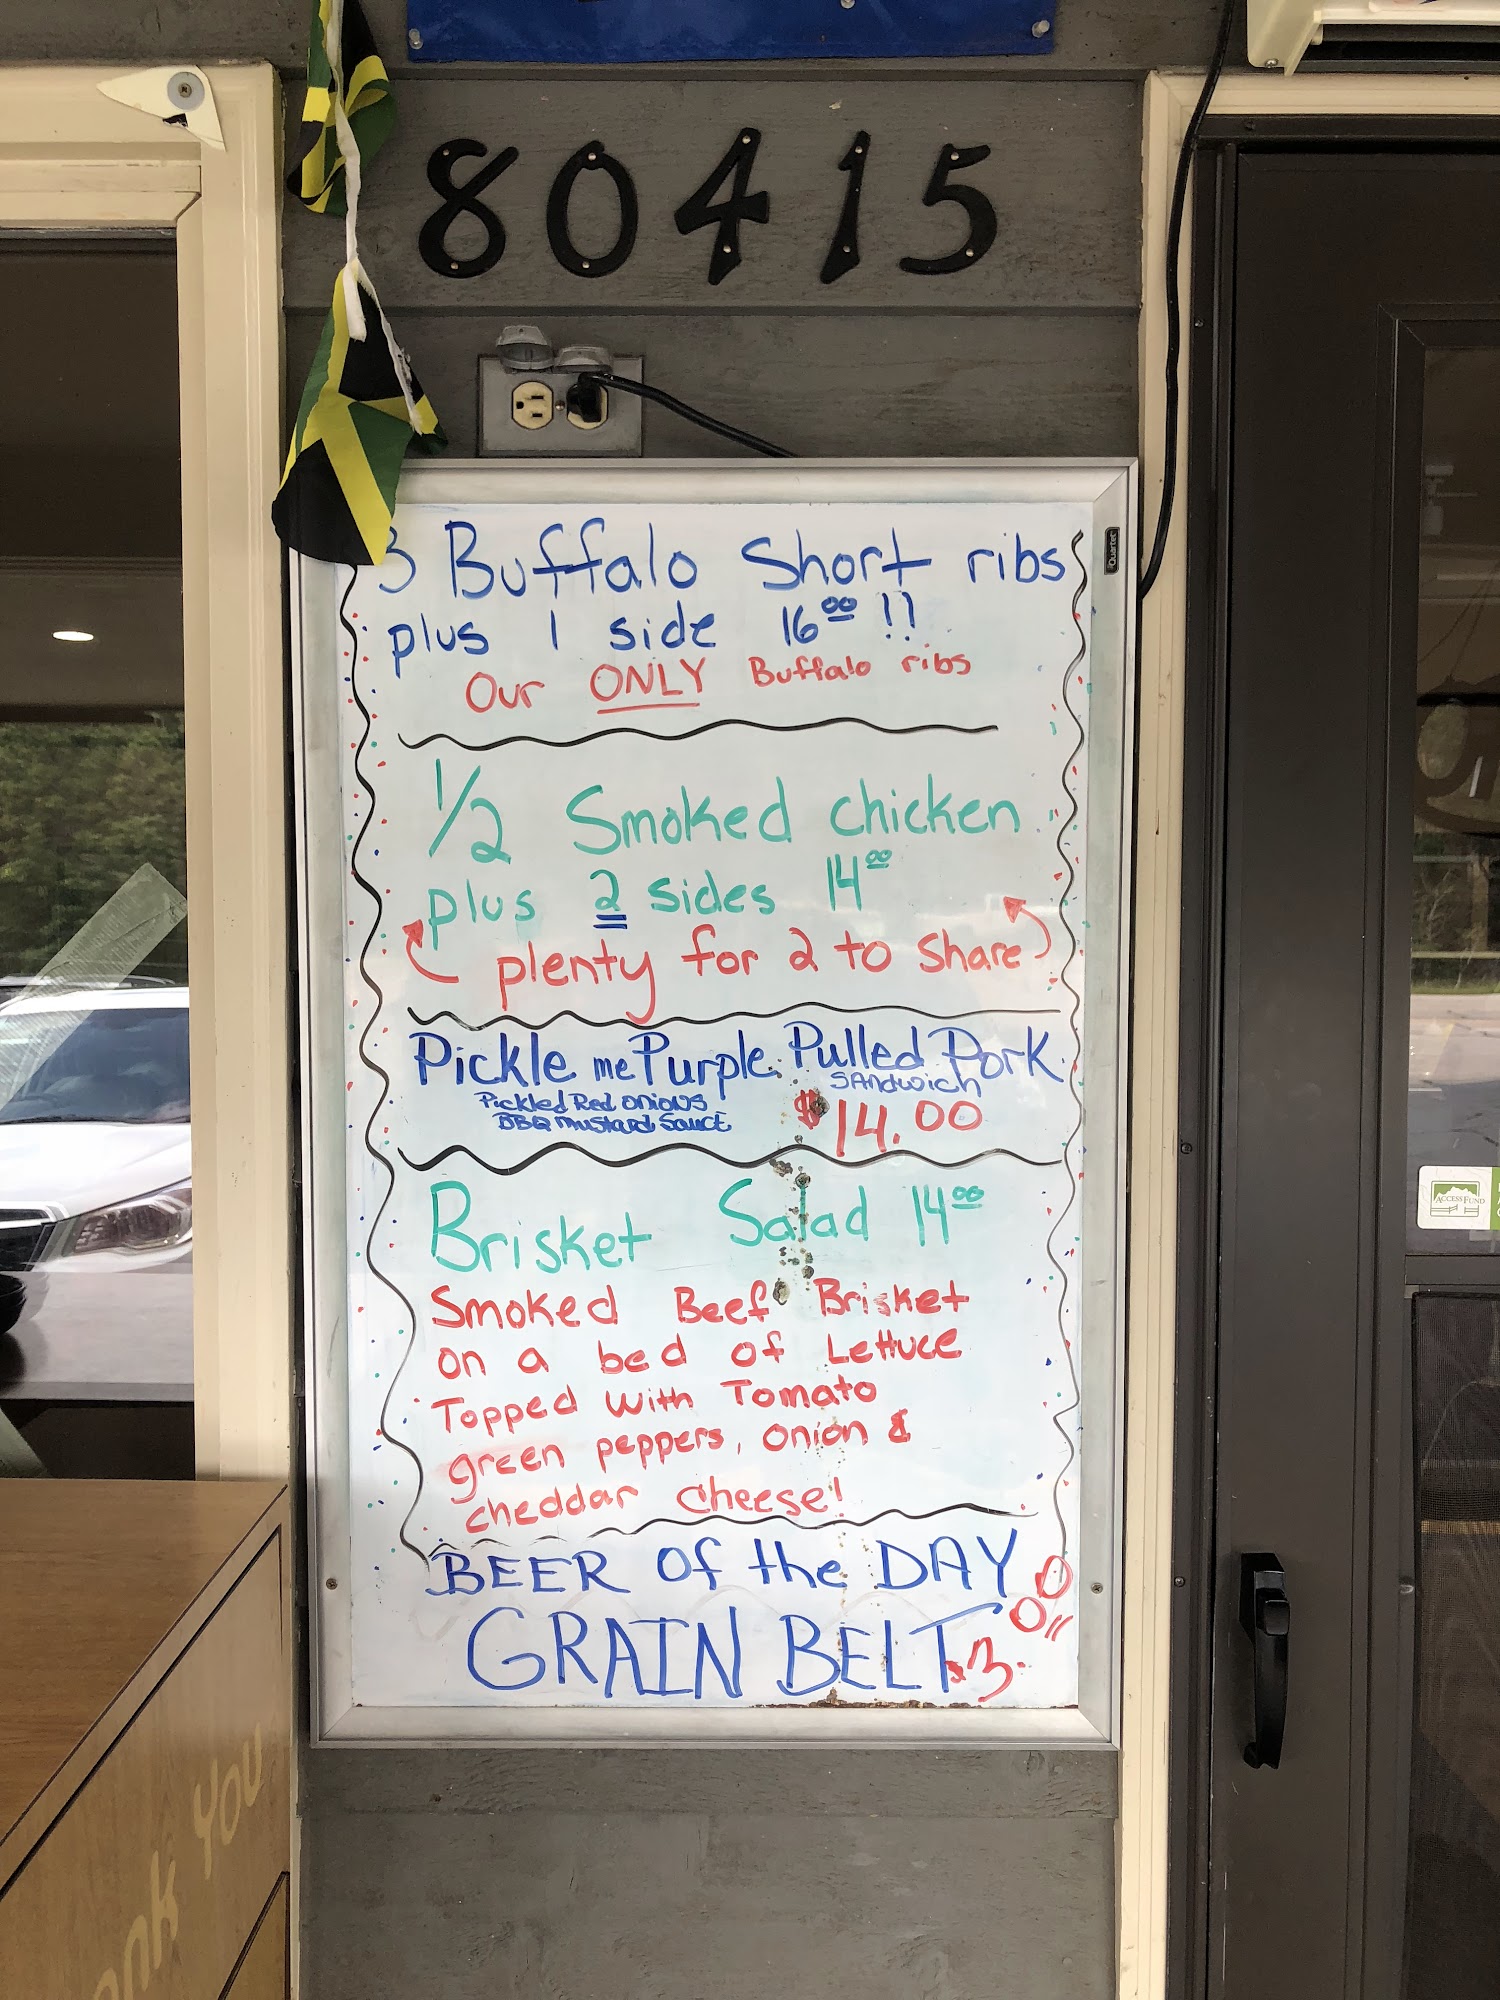 80415
Quartet
3 Buffalo Short ribs
plus 1 side 16⁰⁰ !!
Our ONLY Buffalo ribs
1/2 Smoked chicken
plus 2 sides 14⁰⁰
plenty for 2 to share
Pickle me Purple Pulled Pork
SANdwich
Pickled Red onions
BBQ mustard Sauce
$14.00
Brisket Salad 14⁰⁰
Smoked Beef Brisket
on a bed of Lettuce
Topped with Tomato
green peppers, onion &
cheddar cheese!
BEER of the DAY
GRAIN BELT $3.00
ACCESS FUND
You